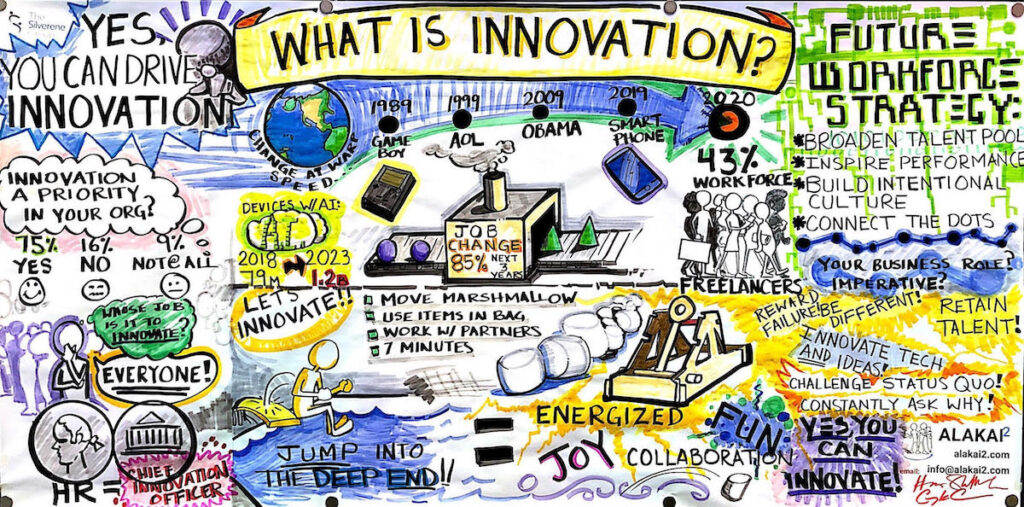 The
Silverene
YES,
YOU CAN DRIVE
INNOVATION
WHAT IS INNOVATION?
CHANGE AT WARP
SPEED...
1989
GAME
BOY
1999
AOL
2009
OBAMA
2019
SMART
PHONE
2020
43%
WORKFORCE
FREELANCERS
FUTURE
WORKFORCE
STRATEGY:
*BROADEN TALENT POOL
*INSPIRE PERFORMANCE
*BUILD INTENTIONAL
CULTURE
*CONNECT THE DOTS
YOUR BUSINESS ROLE?
IMPERATIVE?
INNOVATION
A PRIORITY
IN YOUR ORG?
75% 16% 9%
YES NO NOT@ALL
DEVICES W/AI:
A.I.
2018 2023
79M 1.2B
JOB
CHANGE
85% NEXT
3
YEARS
LETS
INNOVATE!!
MOVE MARSHMALLOW
USE ITEMS IN BAG
WORK W/ PARTNERS
7 MINUTES
WHOSE JOB
IS IT TO
INNOVATE?
EVERYONE!
HR =
CHIEF
INNOVATION
OFFICER
JUMP INTO
THE DEEP END!!
=
ENERGIZED
JOY
COLLABORATION
FUN
REWARD
FAILURE!
BE
DIFFERENT!
RETAIN
TALENT!
INNOVATE TECH
AND IDEAS!
CHALLENGE STATUS QUO!
CONSTANTLY ASK WHY!
YES YOU
CAN
INNOVATE!
ALAKAI2
alakai2.com
email: info@alakai2.com